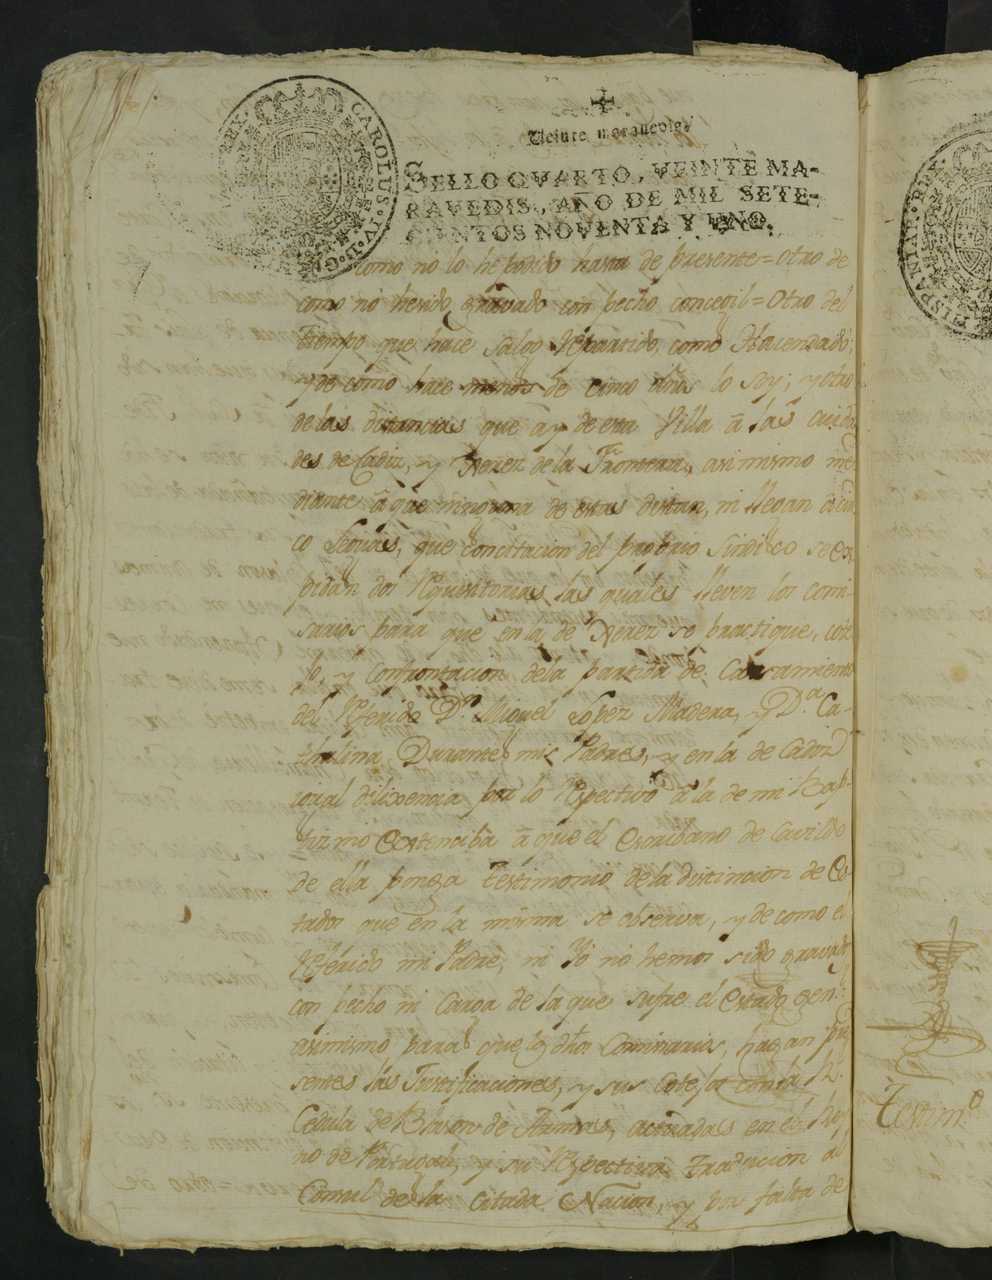 CAROLUS·IV·D·G·
REX·
Veinte maravedis.
SELLO QVARTO, VEINTE MA-
RAVEDIS, AÑO DE MIL SETE-
CIENTOS NOVENTA Y UNO.
como no lo he podido hasta de presente = Otro de
como no he sido gravado con pecho concegil = Otro del
tiempo que hace salgo repartido, como Hacendado,
y de como hace menos de cinco años lo soy; y otro
de las distancias que ay de esta Villa â las ciuda
des de Cadiz, y Xerez de la Frontera, asimismo me
diante â que ninguna de estas distan, ni llegan à cin
co Leguas, que concitacion del propio Sindico se ex
pidan dos Requisitorias, las quales lleven los comi-
sarios para que en la de Xerez se practique, cote
jo, y confrontacion de la partida de Casamiento
del Referido Dn. Miguel Lopez Madera, y Da. Ca-
thalina Durante mis Padres, y en la de Cadiz
igual dilixencia por lo Respectivo â la de mi Bap-
tizmo extenciba â que el escribano de Cavildo
de ella ponga testimonio de la distincion de Es
tados que en la misma se observa, y de como el
Referido mi Padre, ni Yo no hemos sido gravado
con pecho ni Carga de la que sufre el Estado gen.
asimismo para que los dhos Comisarios, hagan pre
sentes las Justificaciones, y su Cotejo con la Rl.
Cedula de Blason de Armas, actuadas en el Rey
no de Portugal, y su Respectiva Traducion del
Consul de la Citada Nacion, y por falta de
HISPANIAR·REX
Testimo